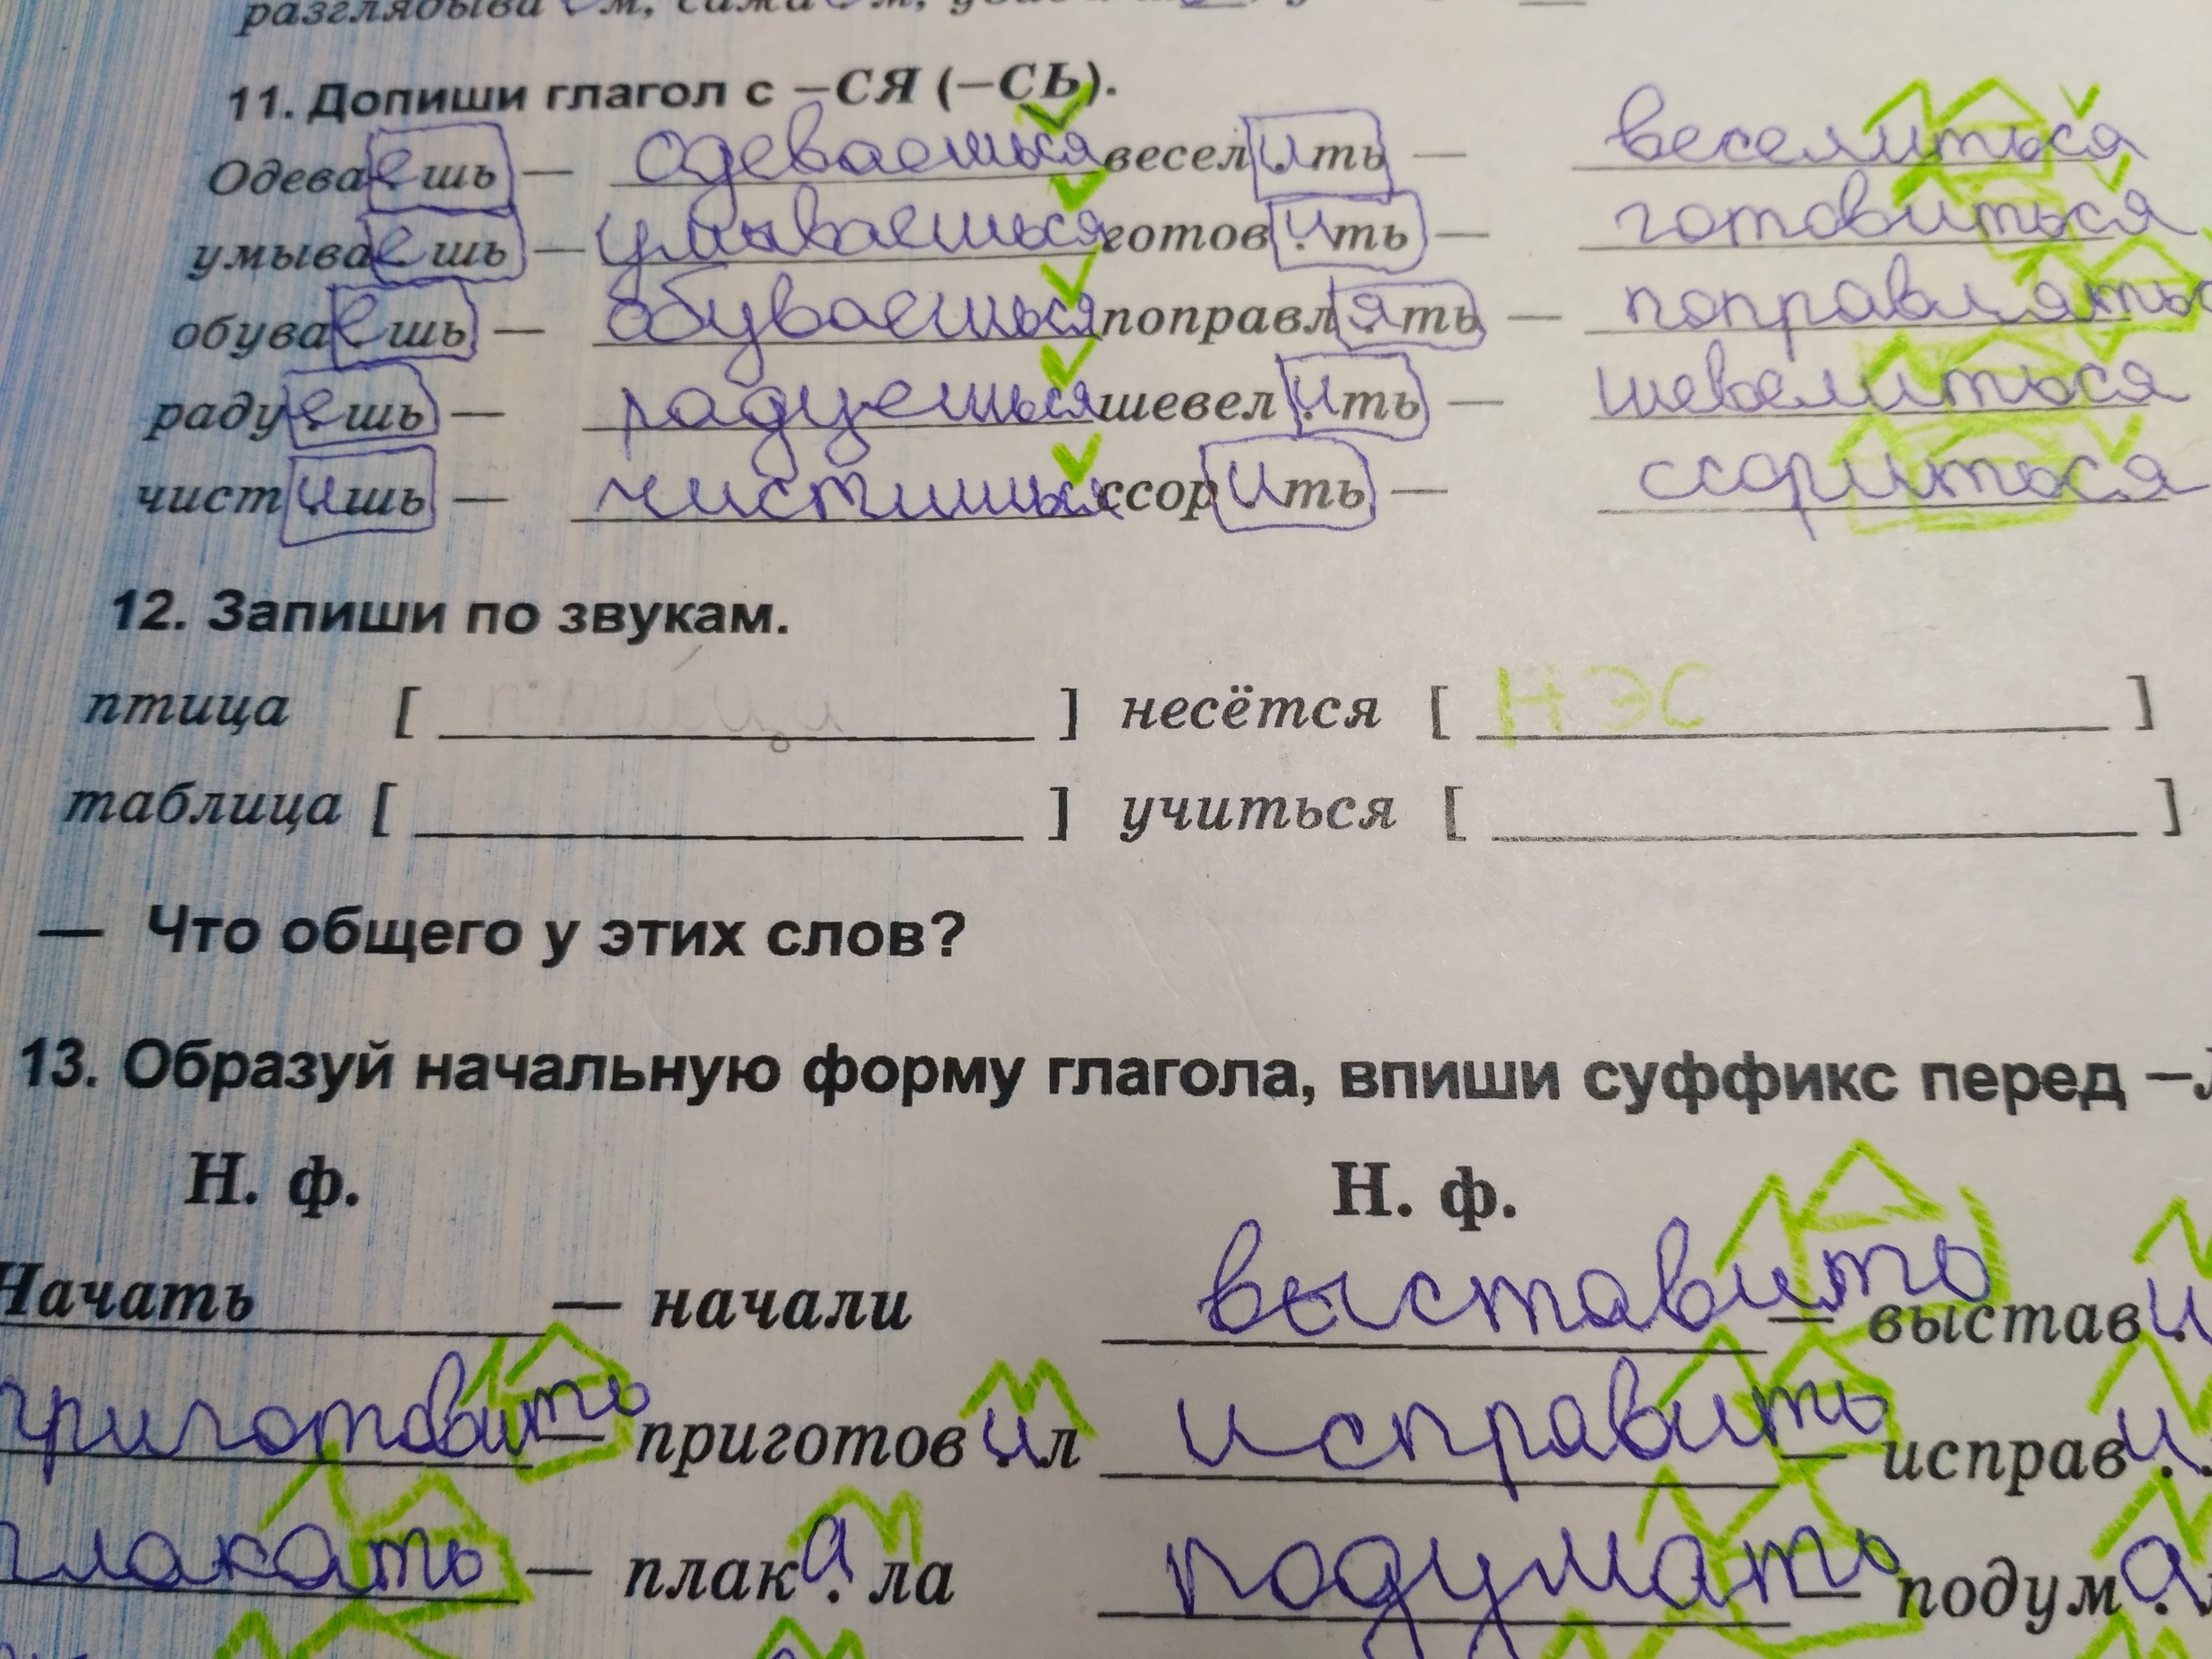 11. Допиши глагол с –СЯ (–СЬ).
Одеваешь — одеваешься веселить — веселиться
умываешь — умываешься готовить — готовиться
обуваешь — обуваешься поправлять — поправлятьс
радуешь — радуешься шевелить — шевелиться
чистишь — чистишься ссорить — ссориться
12. Запиши по звукам.
птица [ ] несётся [ НЭС ]
таблица [ ] учиться [ ]
— Что общего у этих слов?
13. Образуй начальную форму глагола, впиши суффикс перед –Л
Н. ф. Н. ф.
Начать — начали выставить — выстави
приготовить — приготовил исправить — исправи
плакать — плакала подумать — подума